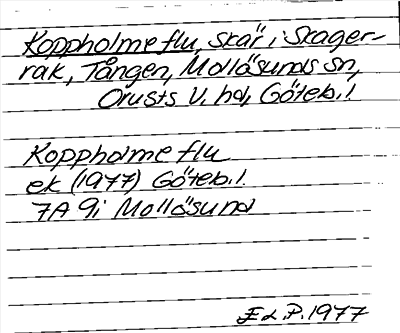 Koppholme flu, skär i Skager-
rak, Tången, Mollösunds sn,
Orusts V. hd, Göteb. l.
Koppholme flu
ek (1977) Göteb. l.
7A 9i Mollösund
E d. P. 1977